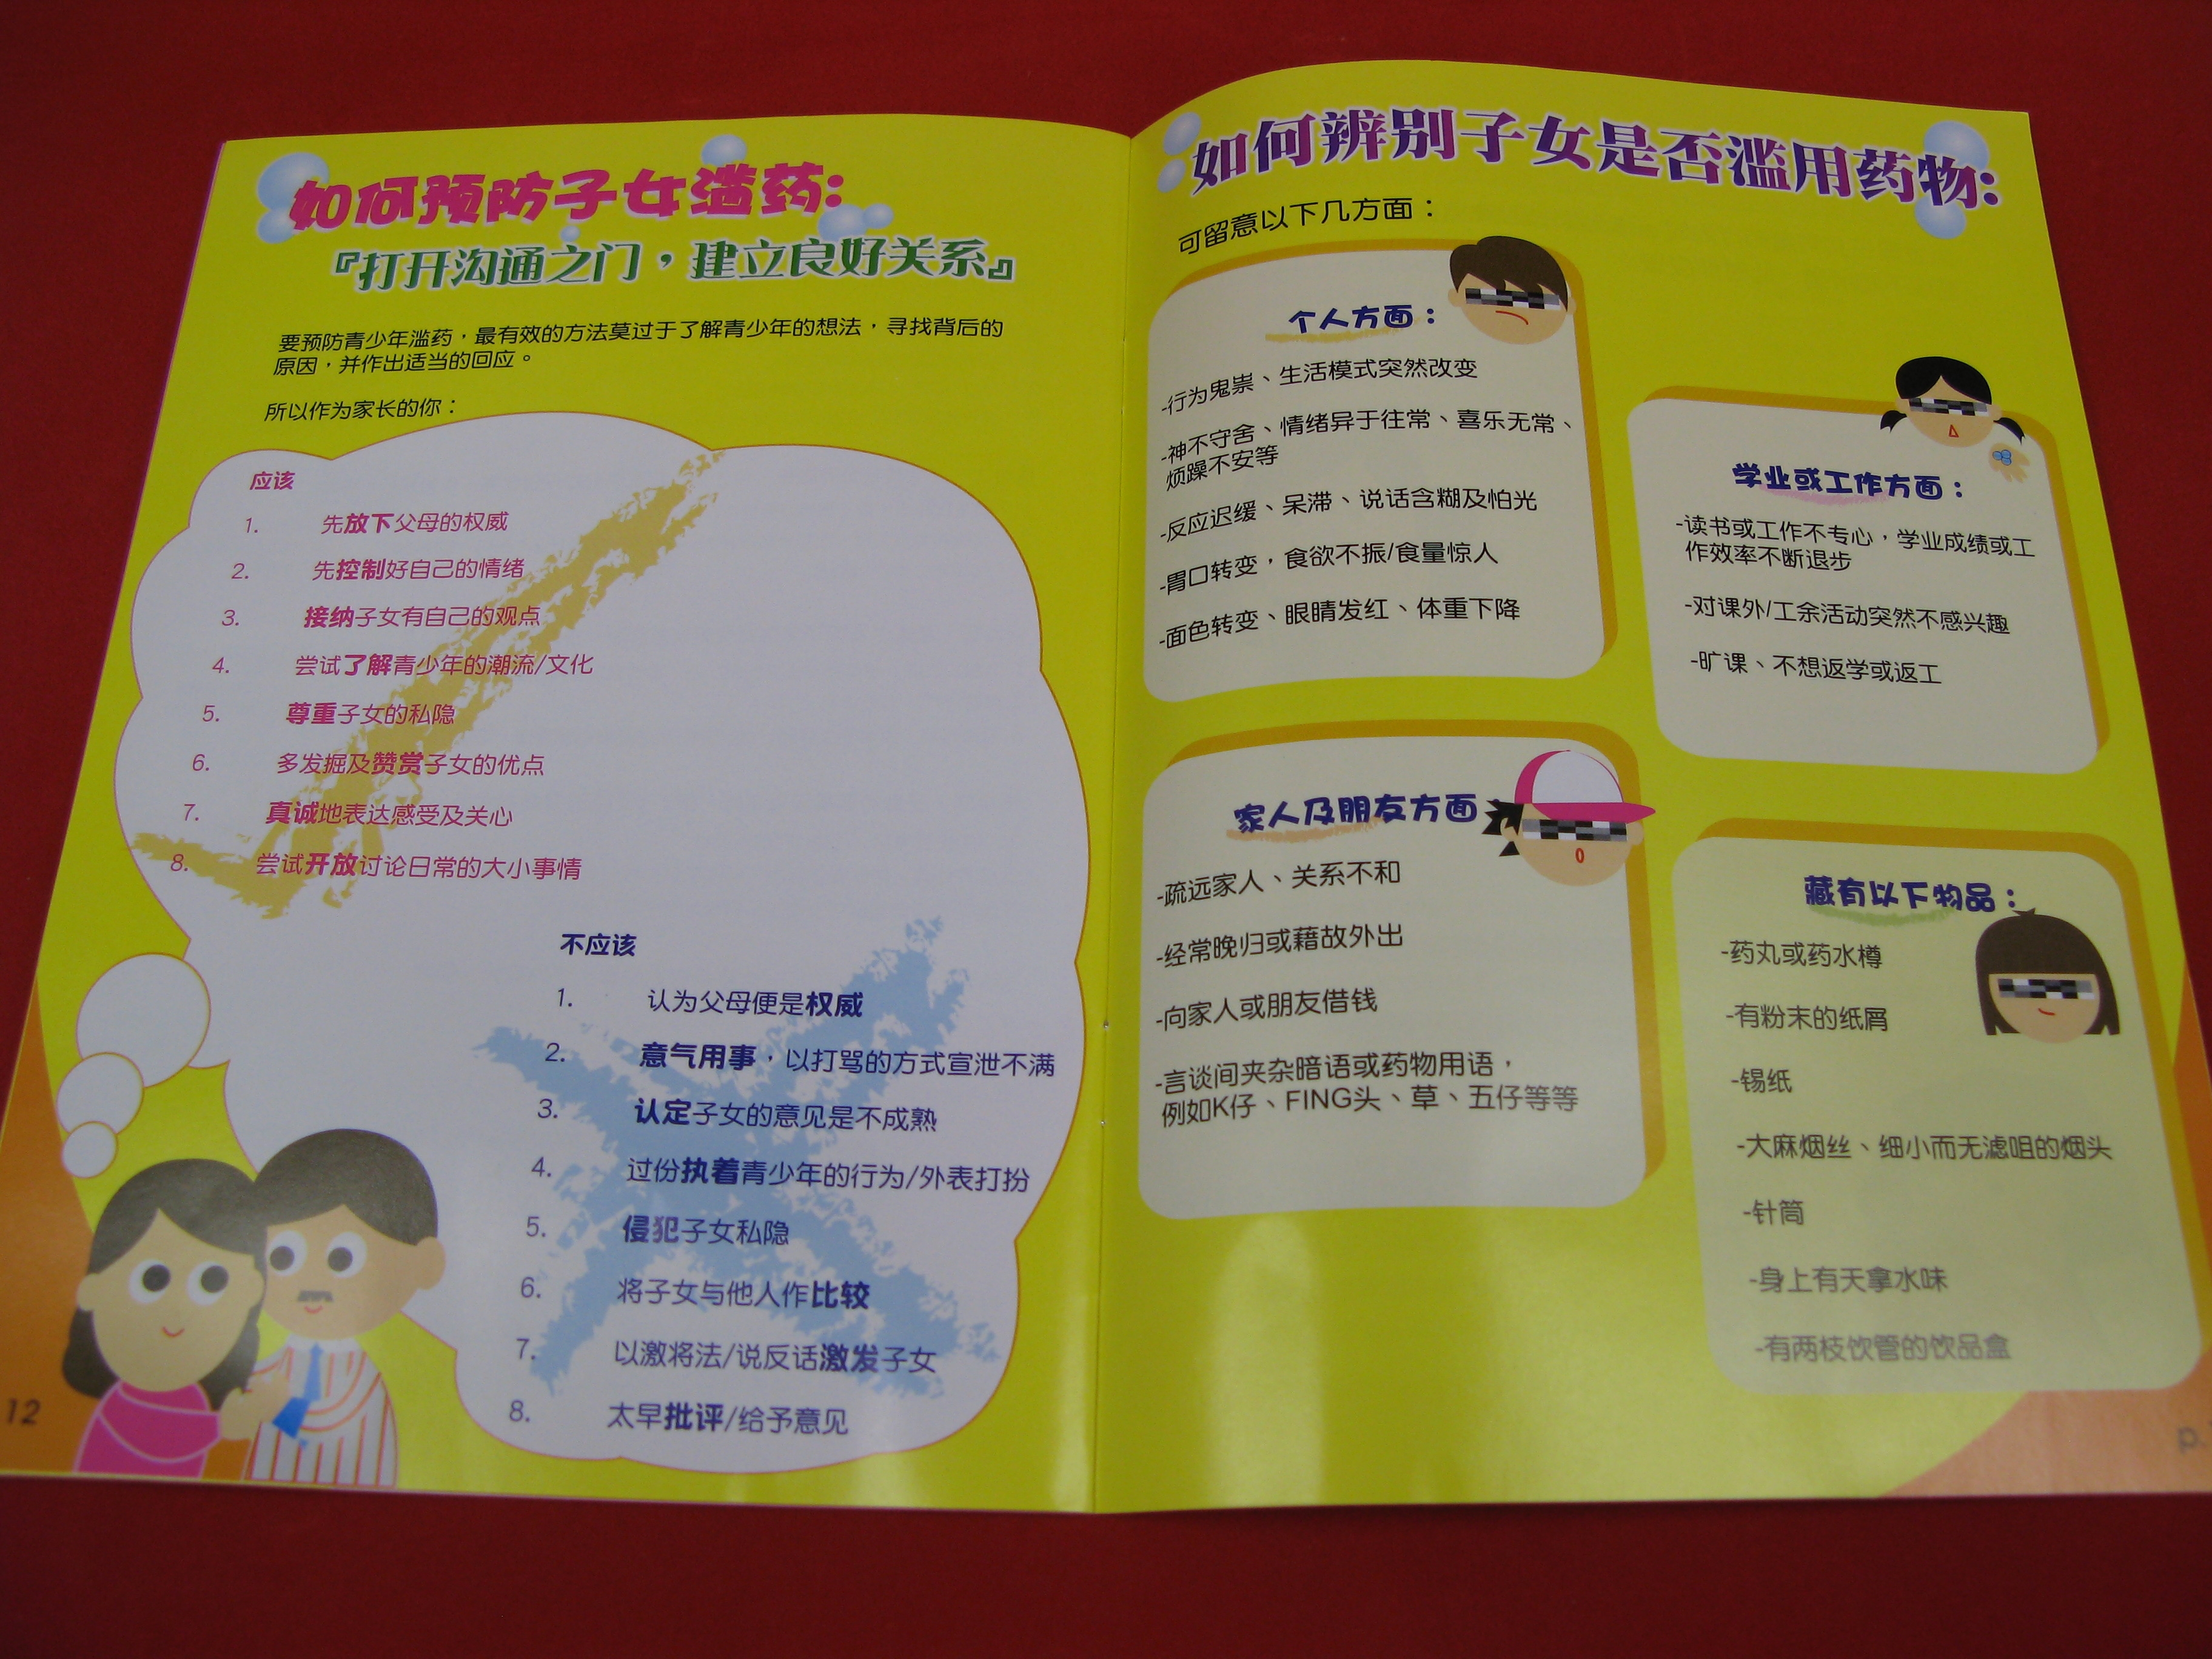 如何预防子女滥药:
『打开沟通之门，建立良好关系』
要预防青少年滥药，最有效的方法莫过于了解青少年的想法，寻找背后的
原因，并作出适当的回应。
所以作为家长的你：
应该
1. 先放下父母的权威
2. 先控制好自己的情绪
3. 接纳子女有自己的观点
4. 尝试了解青少年的潮流/文化
5. 尊重子女的私隐
6. 多发掘及赞赏子女的优点
7. 真诚地表达感受及关心
8. 尝试开放讨论日常的大小事情
不应该
1. 认为父母便是权威
2. 意气用事，以打骂的方式宣泄不满
3. 认定子女的意见是不成熟
4. 过份执着青少年的行为/外表打扮
5. 侵犯子女私隐
6. 将子女与他人作比较
7. 以激将法/说反话激发子女
8. 太早批评/给予意见
12
如何辨别子女是否滥用药物:
可留意以下几方面：
个人方面：
-行为鬼祟、生活模式突然改变
-神不守舍、情绪异于往常、喜乐无常、
烦躁不安等
-反应迟缓、呆滞、说话含糊及怕光
-胃口转变，食欲不振/食量惊人
-面色转变、眼睛发红、体重下降
学业或工作方面：
-读书或工作不专心，学业成绩或工
作效率不断退步
-对课外/工余活动突然不感兴趣
-旷课、不想返学或返工
家人及朋友方面
-疏远家人、关系不和
-经常晚归或藉故外出
-向家人或朋友借钱
-言谈间夹杂暗语或药物用语，
例如K仔、FING头、草、五仔等等
藏有以下物品：
-药丸或药水樽
-有粉末的纸屑
-锡纸
-大麻烟丝、细小而无滤咀的烟头
-针筒
-身上有天拿水味
-有两枝饮管的饮品盒
p.